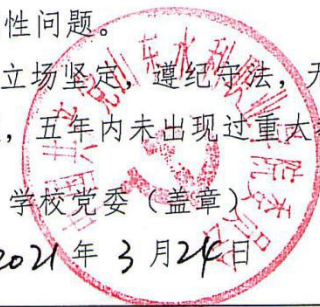 性问题。
立场坚定，遵纪守法，
，五年内未出现过重大
学校党委（盖章）
2021年3月24日